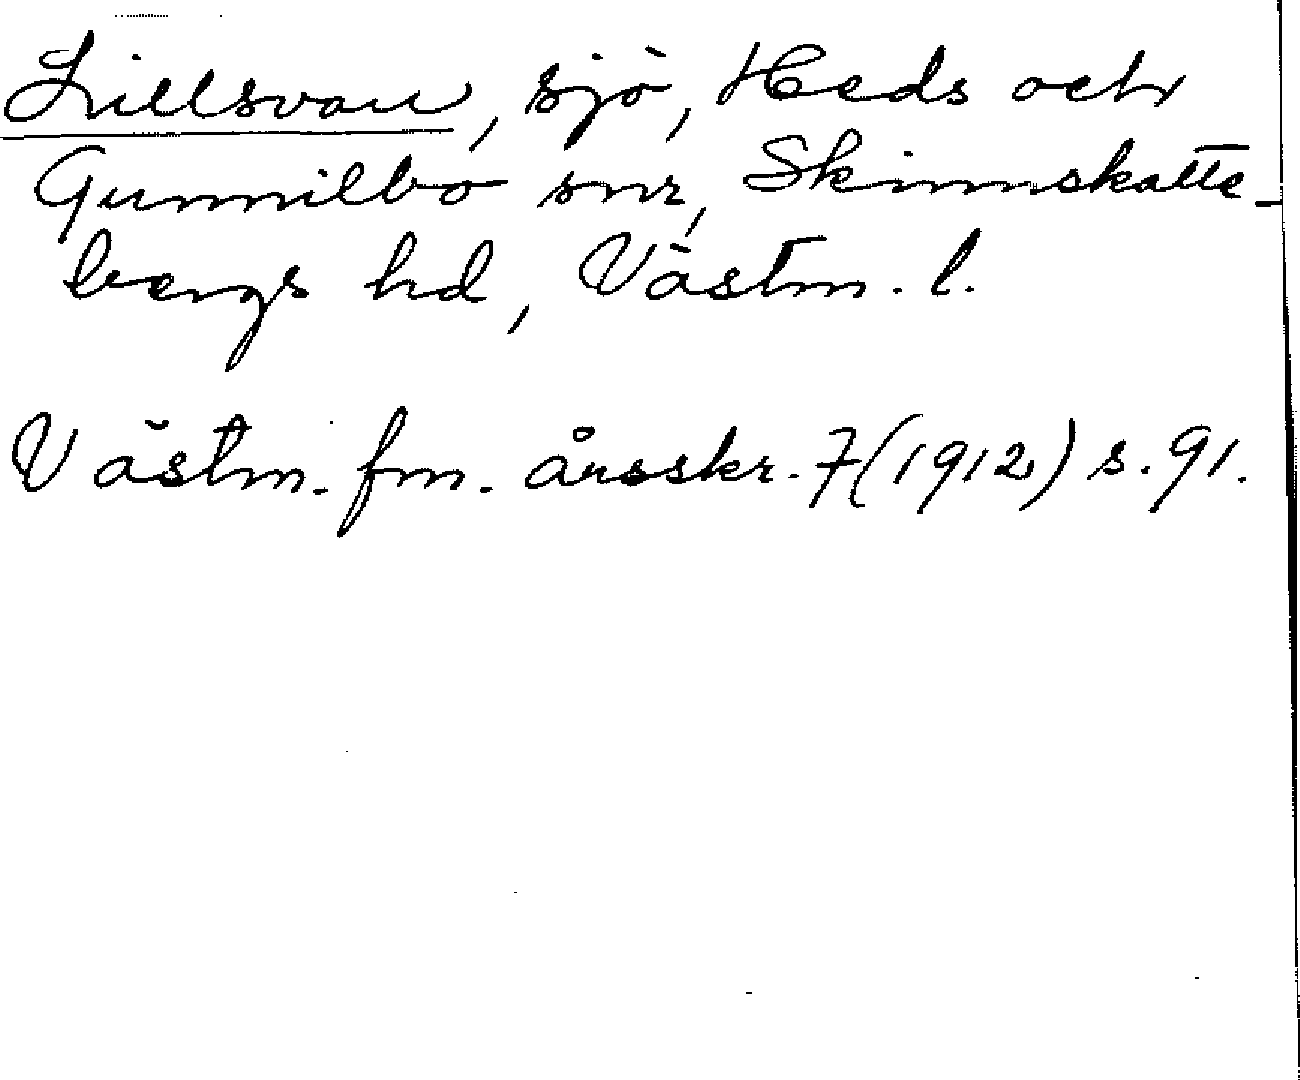 Lillsvan, sjö, Heds och
Gunnilbo snr, Skinnskatte-
bergs hd, Västm. l.
Västm. fm. årsskr. 7 (1912) s. 91.